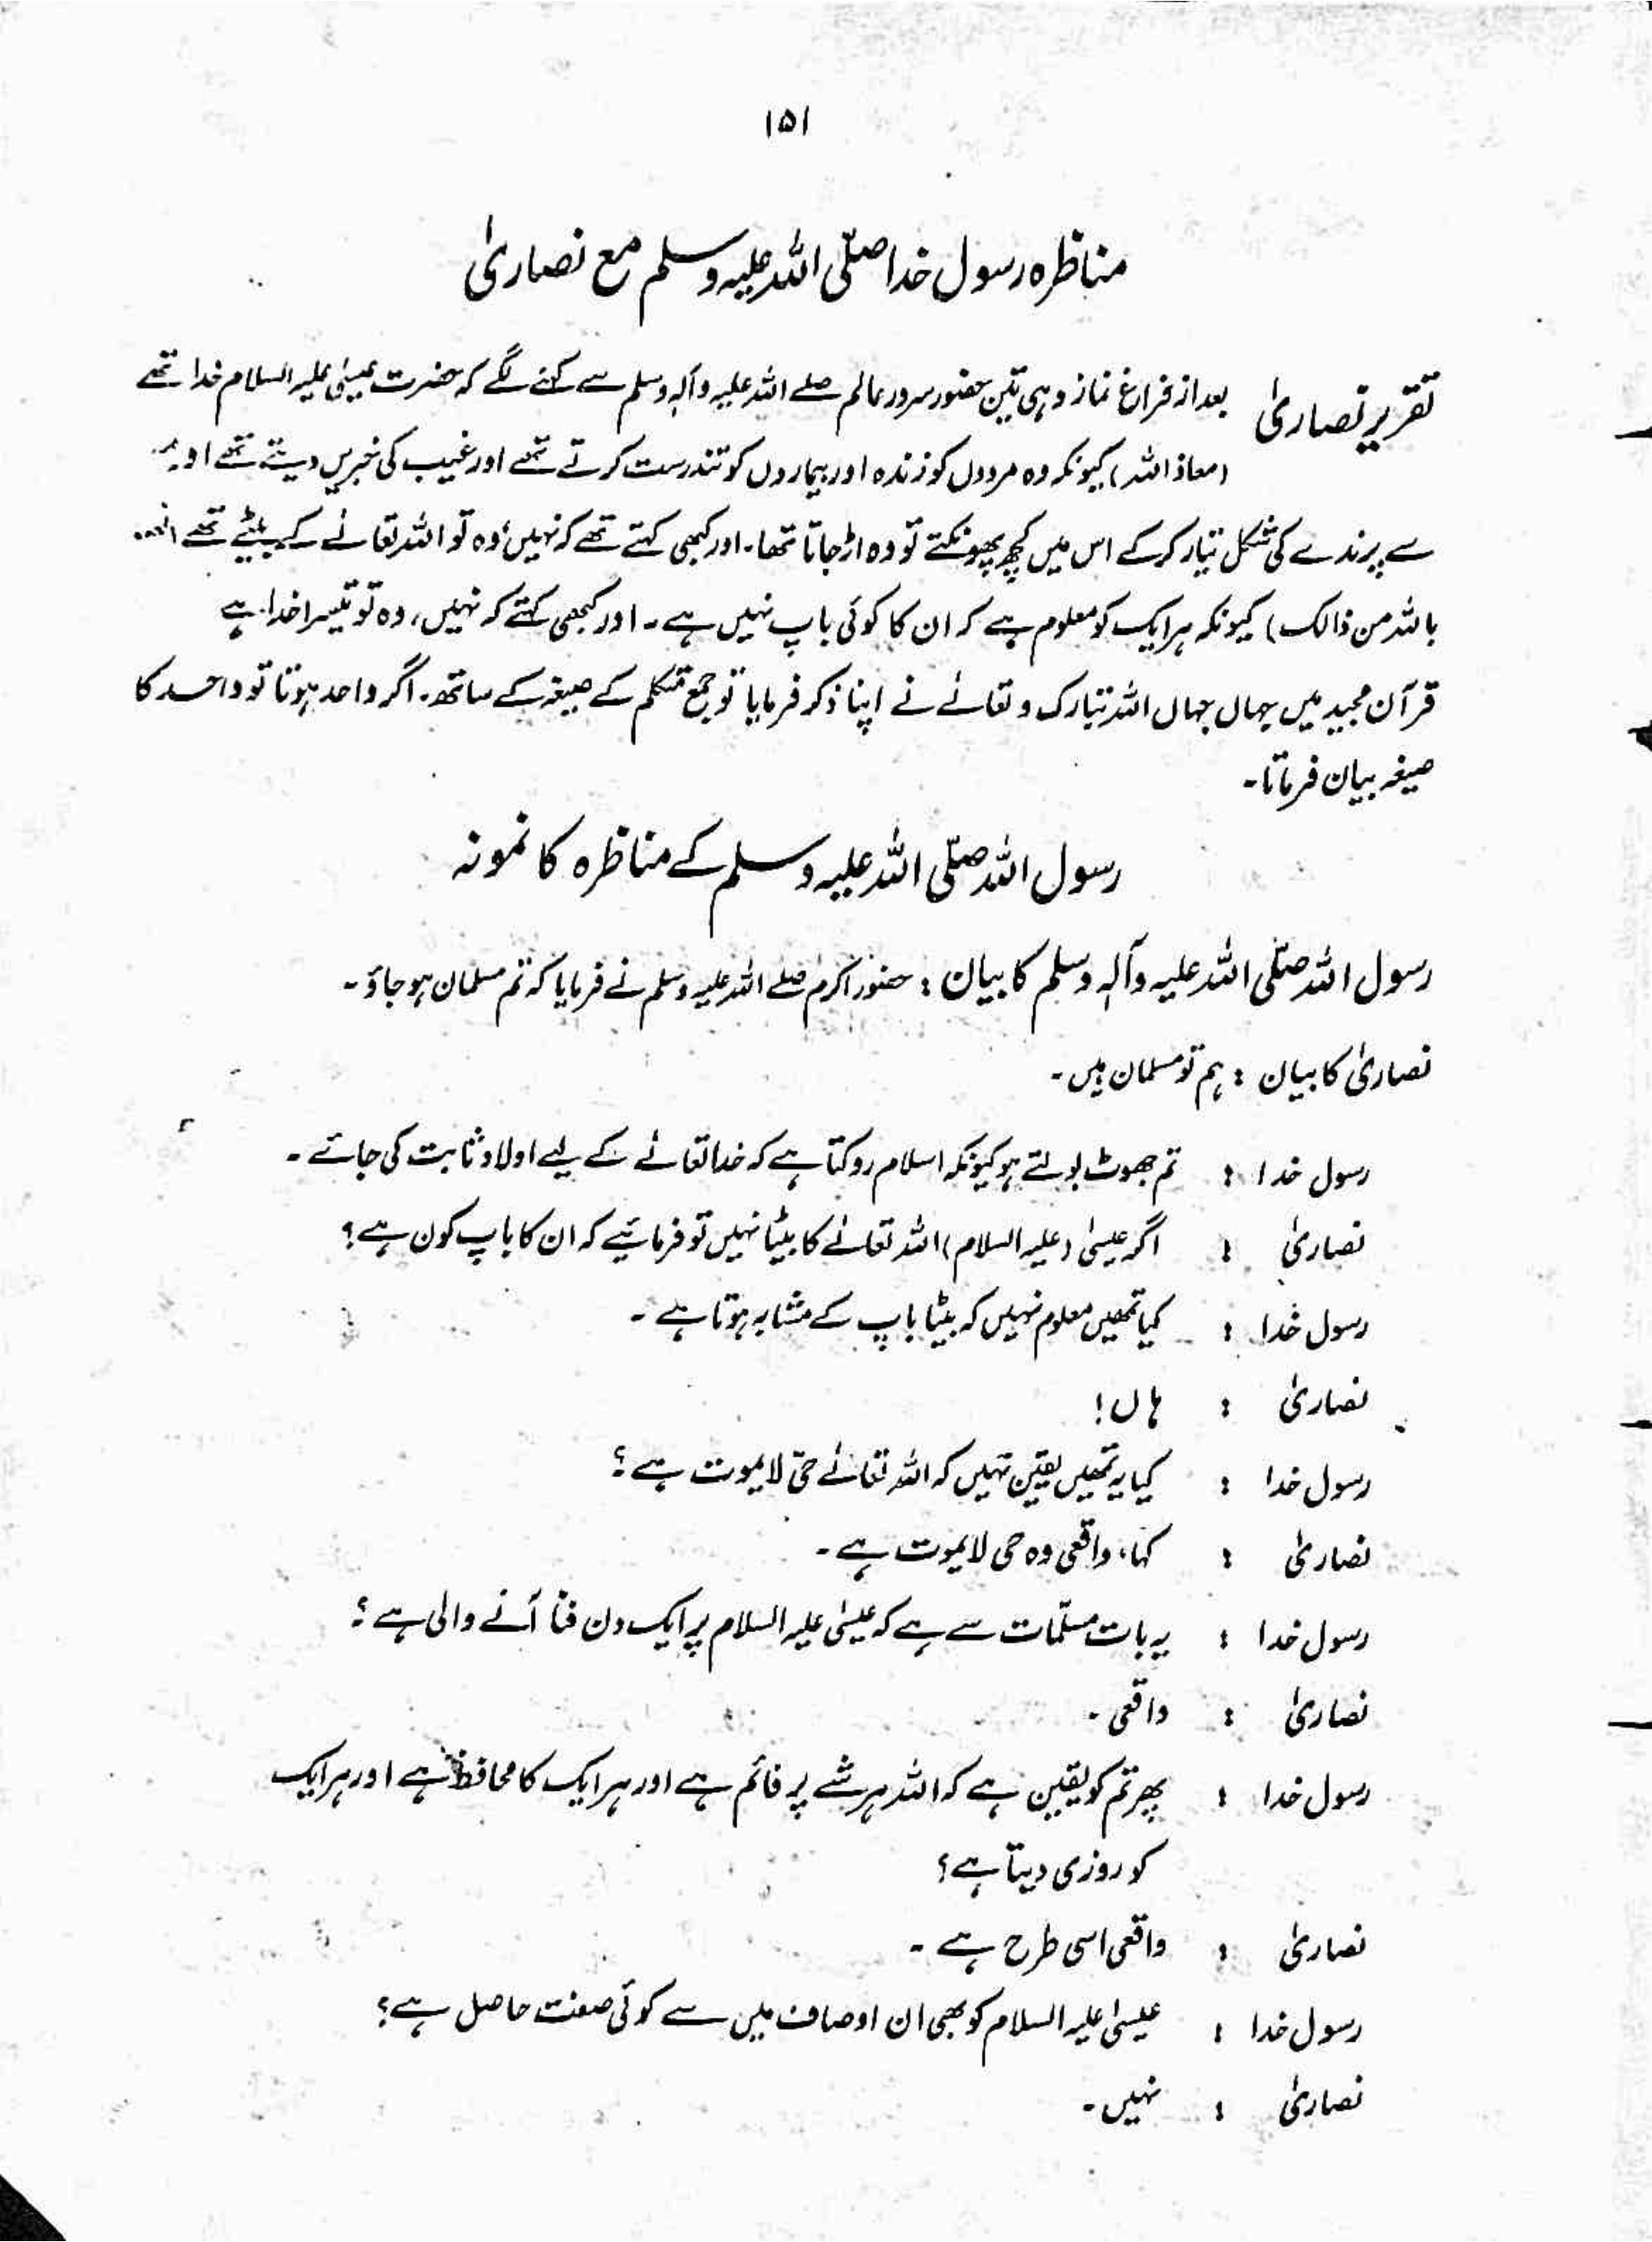 ۱۵۱
مناظرہ رسول خدا صلّی اللہ علیہ وسلم مع نصاریٰ
تقریر نصاریٰ بعد از فراغ نماز وہی تین حضور سرور عالم صلے اللہ علیہ وآلہٖ وسلم سے کہنے لگے کہ حضرت عیسیٰ علیہ السلام خدا تھے
(معاذ اللہ) کیونکہ وہ مردوں کو زندہ اور بیماروں کو تندرست کرتے تھے اور غیب کی خبریں دیتے تھے اور
سے پرندے کی شکل تیار کر کے اس میں کچھ پھونکتے تو وہ اڑ جاتا تھا۔ اور کبھی کہتے تھے کہ نہیں وہ تو اللہ تعالےٰ کے بیٹے تھے
باللہ من ذالک) کیونکہ ہر ایک کو معلوم ہے کہ ان کا کوئی باپ نہیں ہے۔ اور کبھی کہتے کہ نہیں، وہ تو تیسرا خدا ہے
قرآن مجید میں جہاں جہاں اللہ تبارک و تعالےٰ نے اپنا ذکر فرمایا تو جمع متکلم کے صیغہ کے ساتھ۔ اگر واحد ہوتا تو واحد کا
صیغہ بیان فرماتا۔
رسول اللہ صلّی اللہ علیہ وسلم کے مناظرہ کا نمونہ
رسول اللہ صلّی اللہ علیہ وآلہٖ وسلم کا بیان : حضور اکرم صلے اللہ علیہ وسلم نے فرمایا کہ تم مسلمان ہو جاؤ۔
نصاریٰ کا بیان : ہم تو مسلمان ہیں۔
رسول خدا : تم جھوٹ بولتے ہو کیونکہ اسلام روکتا ہے کہ خدا تعالےٰ کے لیے اولاد ثابت کی جائے۔
نصاریٰ : اگر عیسیٰ (علیہ السلام) اللہ تعالےٰ کا بیٹا نہیں تو فرمائیے کہ ان کا باپ کون ہے؟
رسول خدا : کیا تمھیں معلوم نہیں کہ بیٹا باپ کے مشابہ ہوتا ہے۔
نصاریٰ : ہاں!
رسول خدا : کیا یہ تمھیں یقین نہیں کہ اللہ تعالےٰ حیّ لا یموت ہے؟
نصاریٰ : کہا، واقعی وہ حی لا یموت ہے۔
رسول خدا : یہ بات مسلّمات سے ہے کہ عیسیٰ علیہ السلام پر ایک دن فنا آنے والی ہے؟
نصاریٰ : واقعی۔
رسول خدا : پھر تم کو یقین ہے کہ اللہ ہر شے پر قائم ہے اور ہر ایک کا محافظ ہے اور ہر ایک
کو روزی دیتا ہے؟
نصاریٰ : واقعی اسی طرح ہے۔
رسول خدا : عیسیٰ علیہ السلام کو بھی ان اوصاف میں سے کوئی صفت حاصل ہے؟
نصاریٰ : نہیں۔